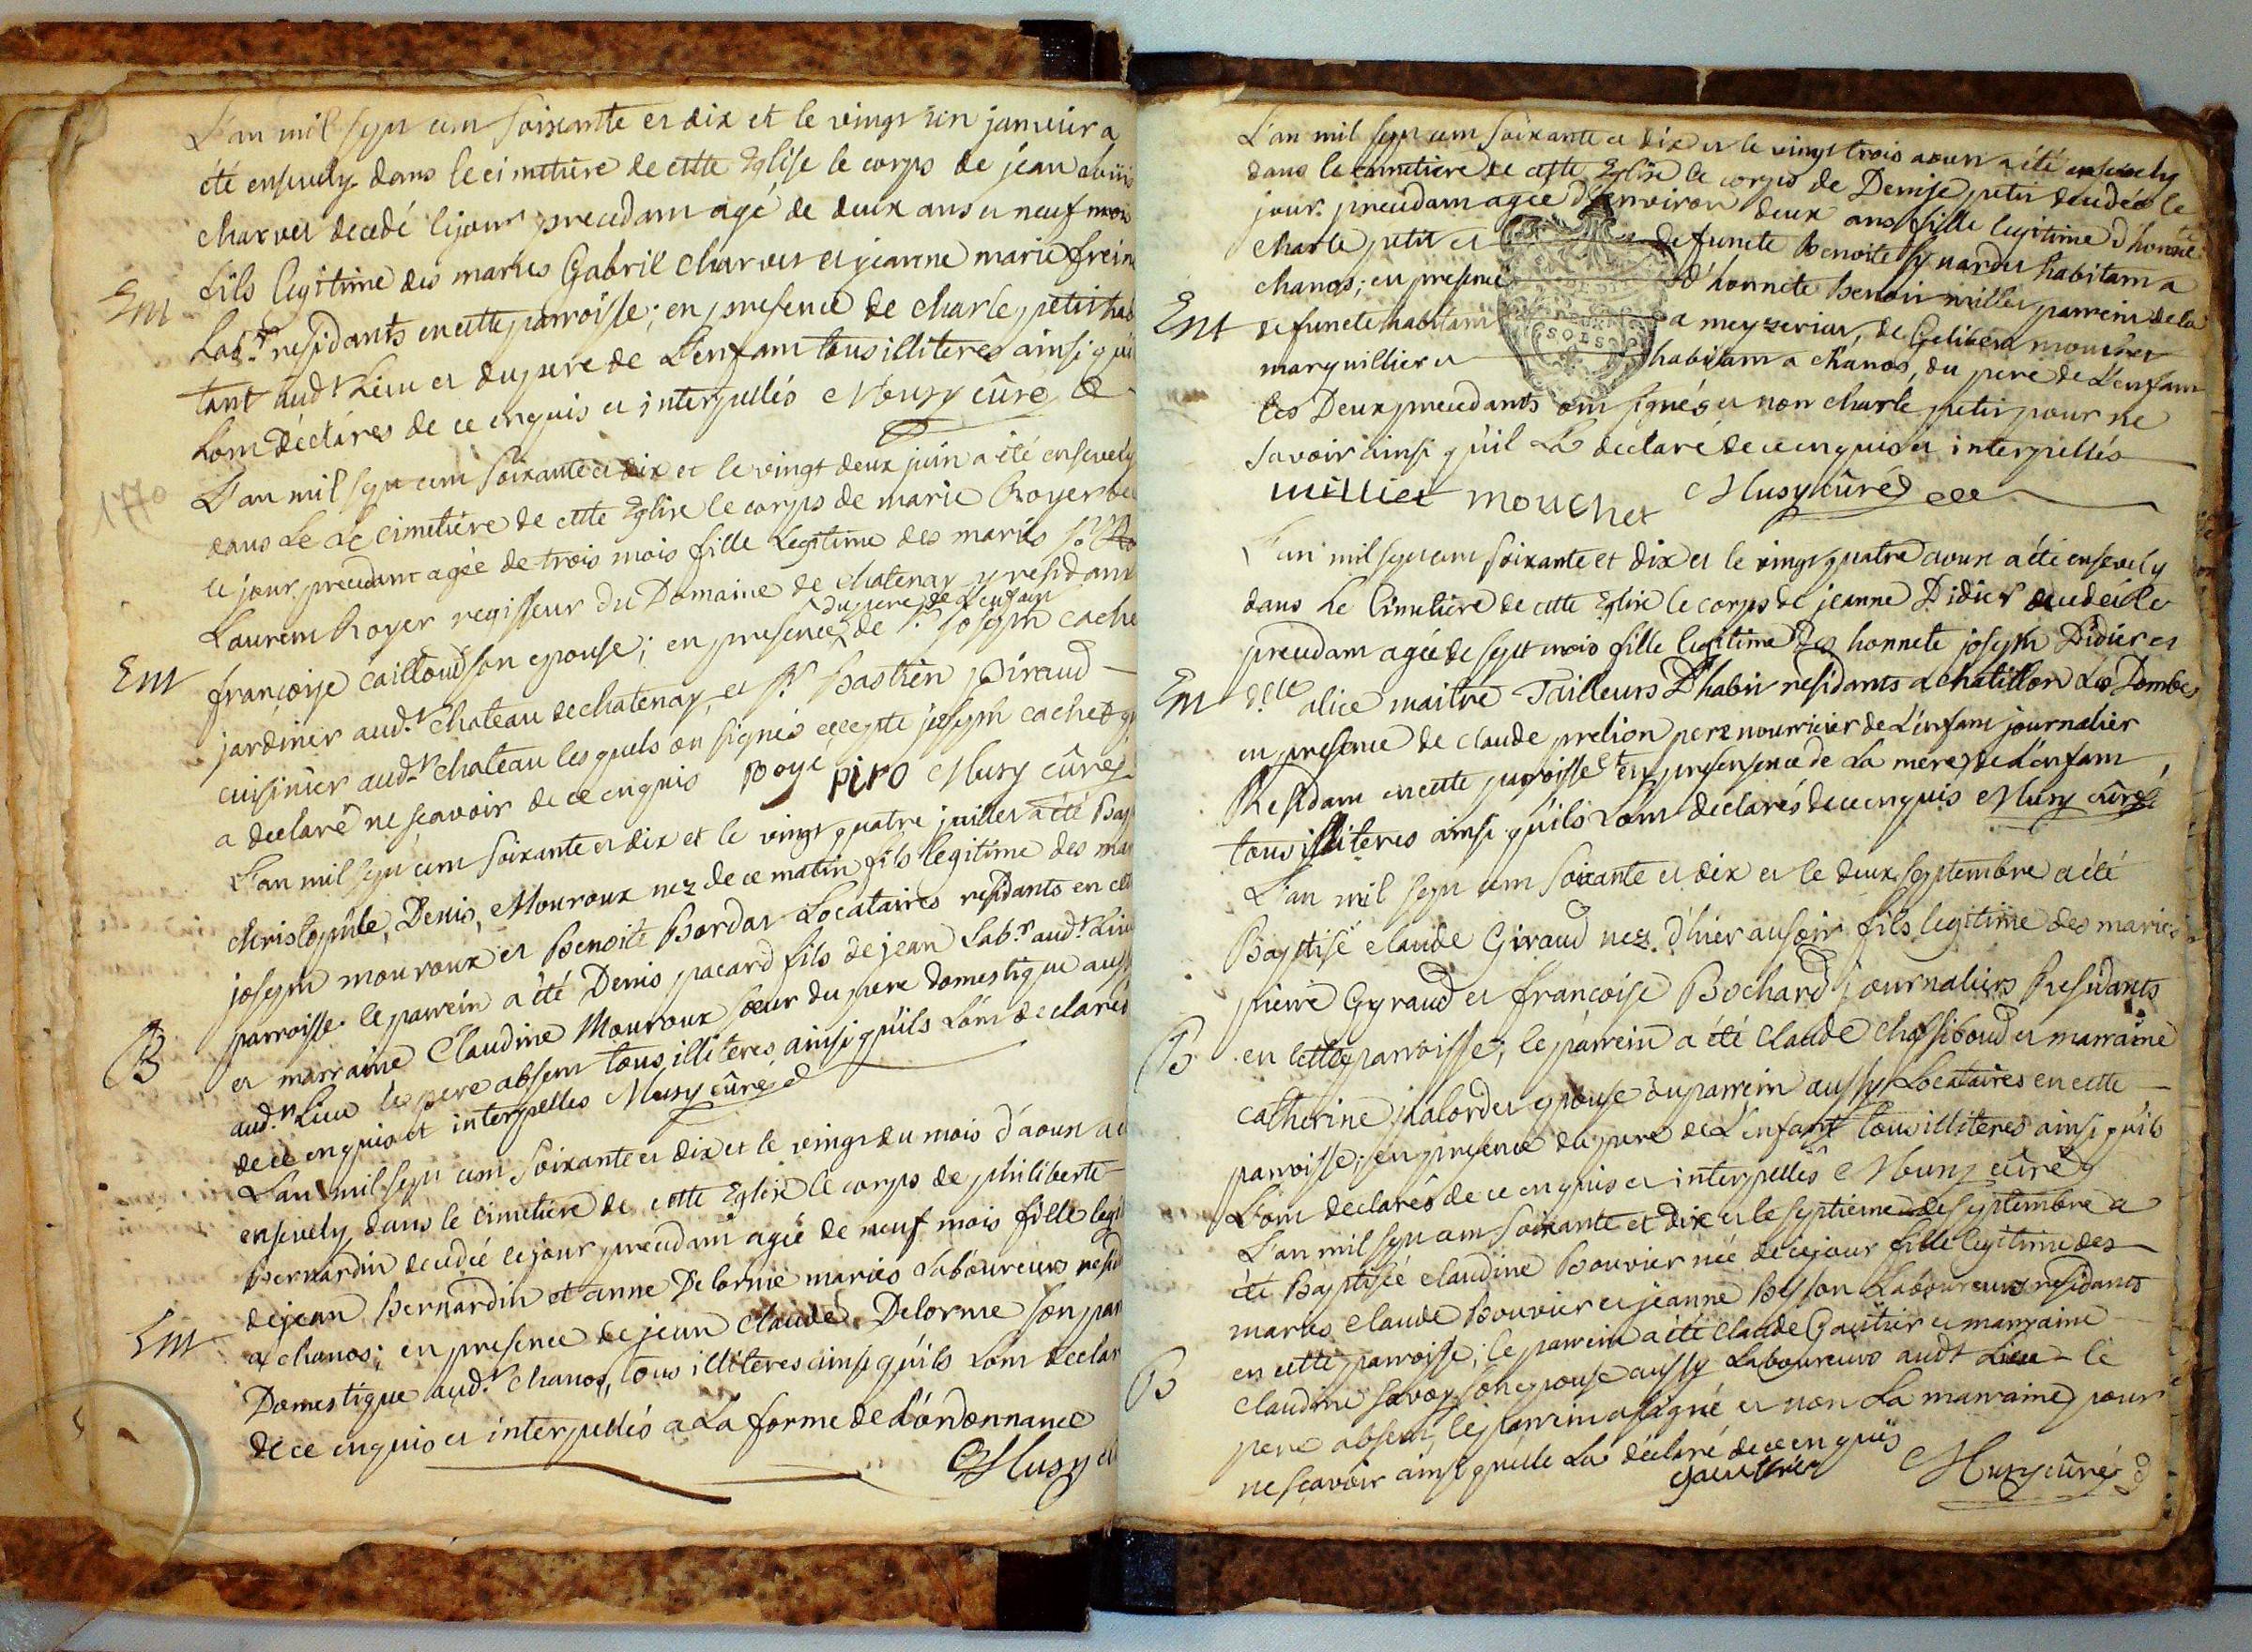 L'an mil sept cent soixante et dix et le vingt un janvier a
été ensevely dans le cimetiere de cette Eglise le corps de jean
charvet decedé le jour precedant agé de deux ans et neuf mois
fils legitime des mariés Gabril charvet et jeanne marie
Ent
Lab.rs residants en cette parroisse; en presence de charle petit habi
tant aud.t Lieu et du pere de L'enfant tous illiteres ainsi qu'il
Lont déclarés de ce enquis et interpellés Musy cûré
1770
L'an mil sept cent soixante et dix et le vingt deux juin a été ensevely
dans Le Le cimetiére de cette Eglise le corps de marie Royer
le jour precedant agée de trois mois fille Legitime des mariés s.r
Laurent Royer regisseur du Domaine de chatenay y residant
du pere de L'enfant
Ent
françoise cailloud son epouse; en presence de s.r joseph cachet
jardinier aud.t chateau de chatenay, et s.r Bastien piraud
cuisinier aud.t chateau lesquels on signés excepte joseph cachet
a declaré ne sçavoir de ce enquis Roye piro Musy cûré
L'an mil sept cent soixante et dix et le vingt quatre juillet a été Bap
christophle, Denis, Mouroux nez de ce matin fils legitime des mar
joseph mouroux et Benoite Bordat Locataires residants en cette
parroisse le parrein a été Denis pacard fils de jean Lab.r aud.t Lieu
B
et marraine Claudine Mouroux sœur du pere domestique aussy
aud.t Lieu le pere absent tous illiteres ainsi qu'ils L'ont declarés
de ce enquis et interpelles Musy cûré
L'an mil sept cent soixante et dix et le vingt du mois d'aoust a
ensevely dans le cimetiere de cette Eglise le corps de philiberte
Bernardin decedée le jour precedant agée de neuf mois fille legit
de jean Bernardin et anne Delorme mariés Laboureurs resid
Ent
a chanos; en presence de jean claude Delorme son par
Domestique aud.t chanos, tous illiteres ainsi qu'ils Lont declar
de ce enquis et interpellés a La forme de L'ordonnance
Musy
L'an mil sept cent soixante et dix et le vingt trois aoust a été ensevely
dans le cimetiere de cette Eglise le corps de Denise petit decedée le
jour precedant agée d'environ deux ans fille legitime d'honnete
charle petit et defuncte Benoite habitant a
chanos; en presence d'honnete Benoit millet parrein de la
Ent
defuncte habitant a meyzeriat, de Gelibert mouchet
marguillier et habitant a chanos, du pere de L'enfant
les Deux precedants ont signés et non charle petit pour ne
savoir ainsi qu'il La declaré de ce enquis et interpellés
millet mouchet Musy cûré
L'an mil sept cent soixante et dix et le vingt quatre aoust a été ensevely
dans Le Cimetiére de cette Eglise le corps de jeanne Didier decedée le
precedant agée de sept mois fille legitime des honnete joseph Didier et
Ent
d.lle alice maitre Tailleurs D'habit residants a chatillon Les Dombes
en presence de claude prelion pere nourricier de L'enfant journalier
Residant en cette parroisse et en presensence de La mere de L'enfant
tous illiteres ainsi qu'ils Lont declarés de ce enquis Musy cûré
L'an mil sept cent soixante et dix et le deux septembre a été
Baptisé claude Giraud nez d'hier au soir fils legitime des mariés
pierre Gyraud et françoise Bochard journaliers Residants
B
en cette parroisse; le parrein a été claude chassiboud et marraine
catherine jalordet epouse du parrein aussy Locataires en cette
parroisse; en presence du pere de L'enfant tous illiteres ainsi qu'ils
L'ont declarés de ce enquis et interpellés Musy cûré
L'an mil sept cent soixante et dix et le septieme de septembre a
été Baptisée claudine Bouvier née de ce jour fille legitime des
mariés claude Bouvier et jeanne Besson Laboureurs residants
en cette parroisse; le parrein a été claude Gautier et marraine
B
claudine savoy son epouse aussy Laboureurs aud.t Lieu le
pere absent, le parrein a signé et non La marraine pour
ne sçavoir ainsi qu'elle La déclaré de ce enquis
gauthier Musy cûré